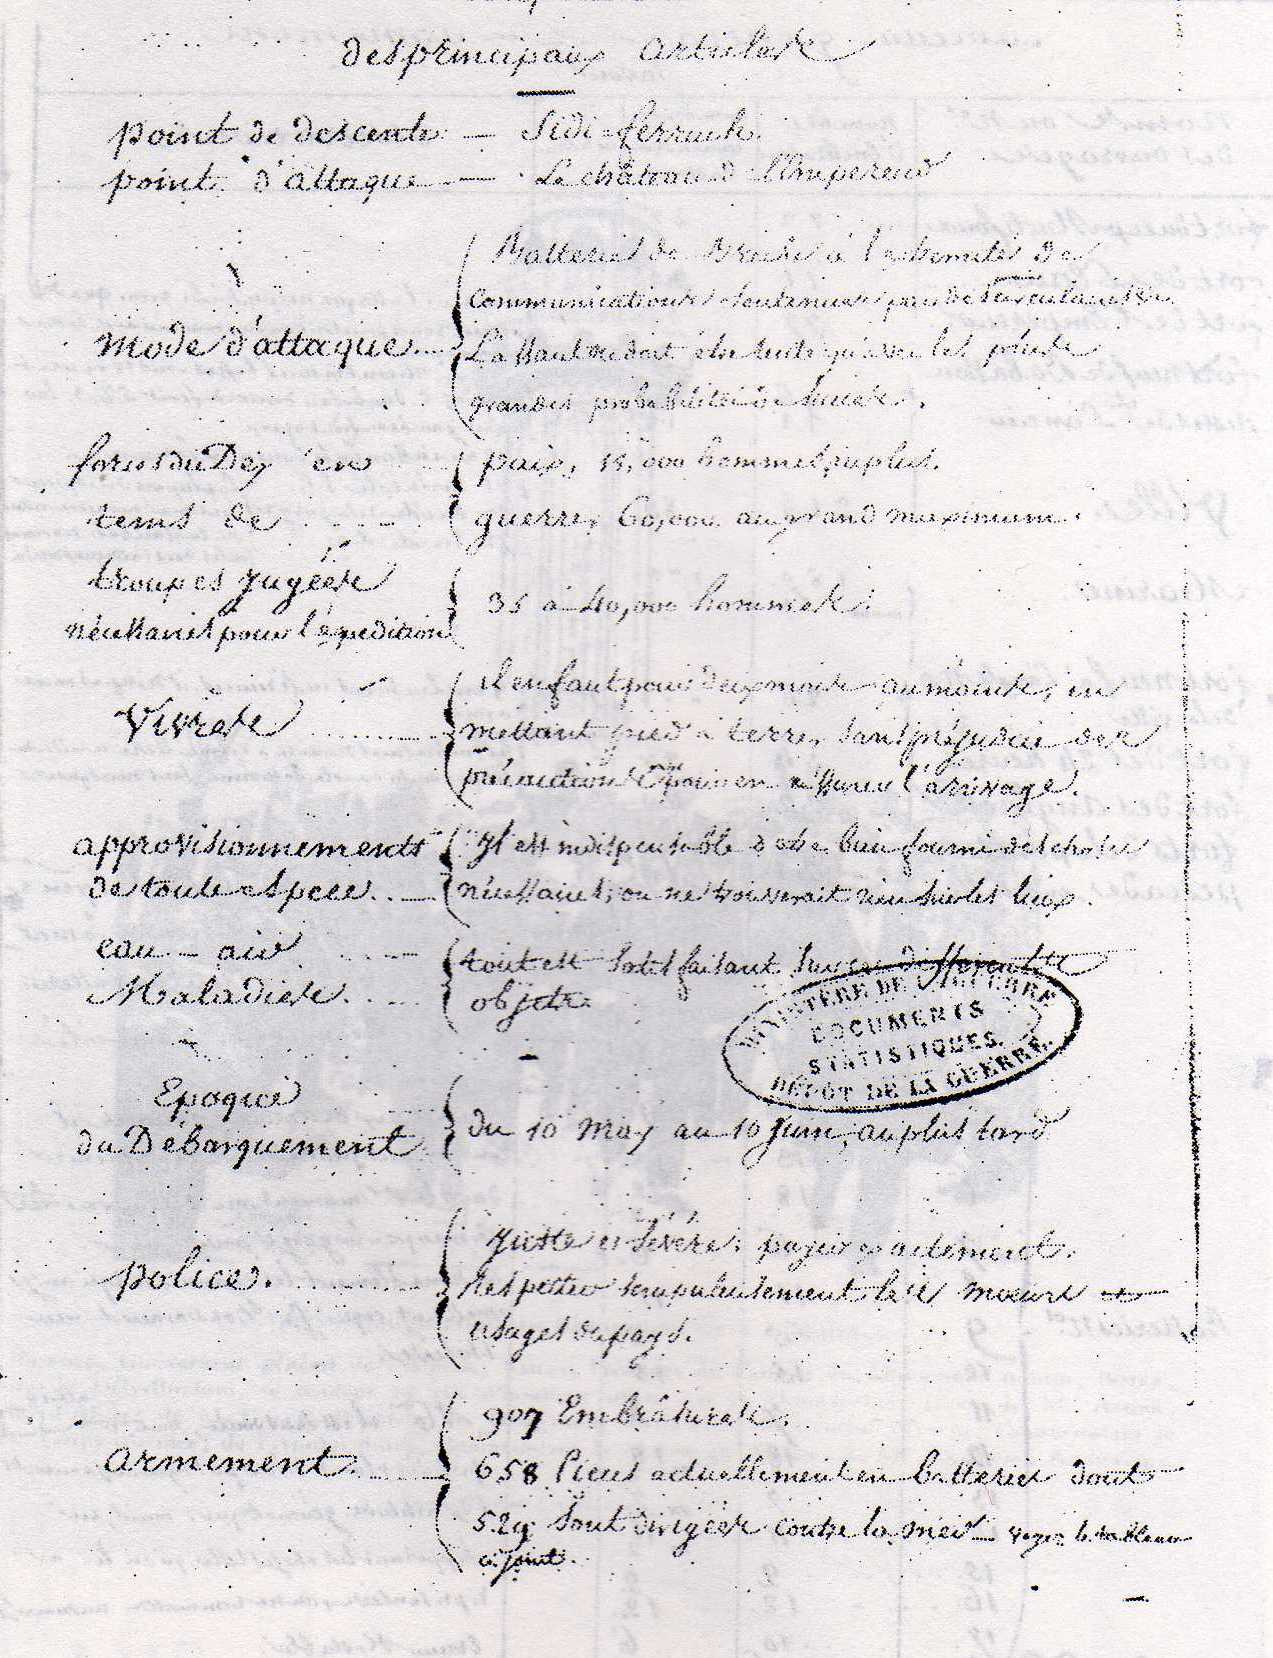 des principaux articles
point de descente — Sidi-ferruch.
point d'attaque — Le château de l'Empereur
Batteries de Brèche à l'extremité de
communications soutenues par des
mode d'attaque L'assaut ne doit être tenté qu'avec les plus
grandes probabilités de succès.
forces du Dey en paix, 15,000 hommes, au plus.
tems de guerre, 60,000 au grand maximum.
troupes jugées
nécessaires pour l'expedition 35 à 40,000 hommes.
il en faut pour deux mois au moins, en
Vivres mettant pied à terre, sans préjudice des
précautions pour en assurer l'arivage.
approvisionnements Il est indispensable d'être bien fourni des choses
de toute espece nécessaires, on ne trouverait rien sur les lieux.
eau - air tout est satisfaisant sur ces differentes
Maladies objets.
MINISTÈRE DE LA GUERRE
DOCUMENTS
STATISTIQUES.
DÉPÔT DE LA GUERRE.
Epoque
du Débarquement du 10 May au 10 Juin, au plus tard
Juste et sévère; payer exactement.
police. respecter scrupuleusement les mœurs et
usages du pays.
907 Embrâsures.
armement 658 Pieces actuellement en batteries dont
529 sont dirigées contre la mer — voyez le tableau
ci joint.